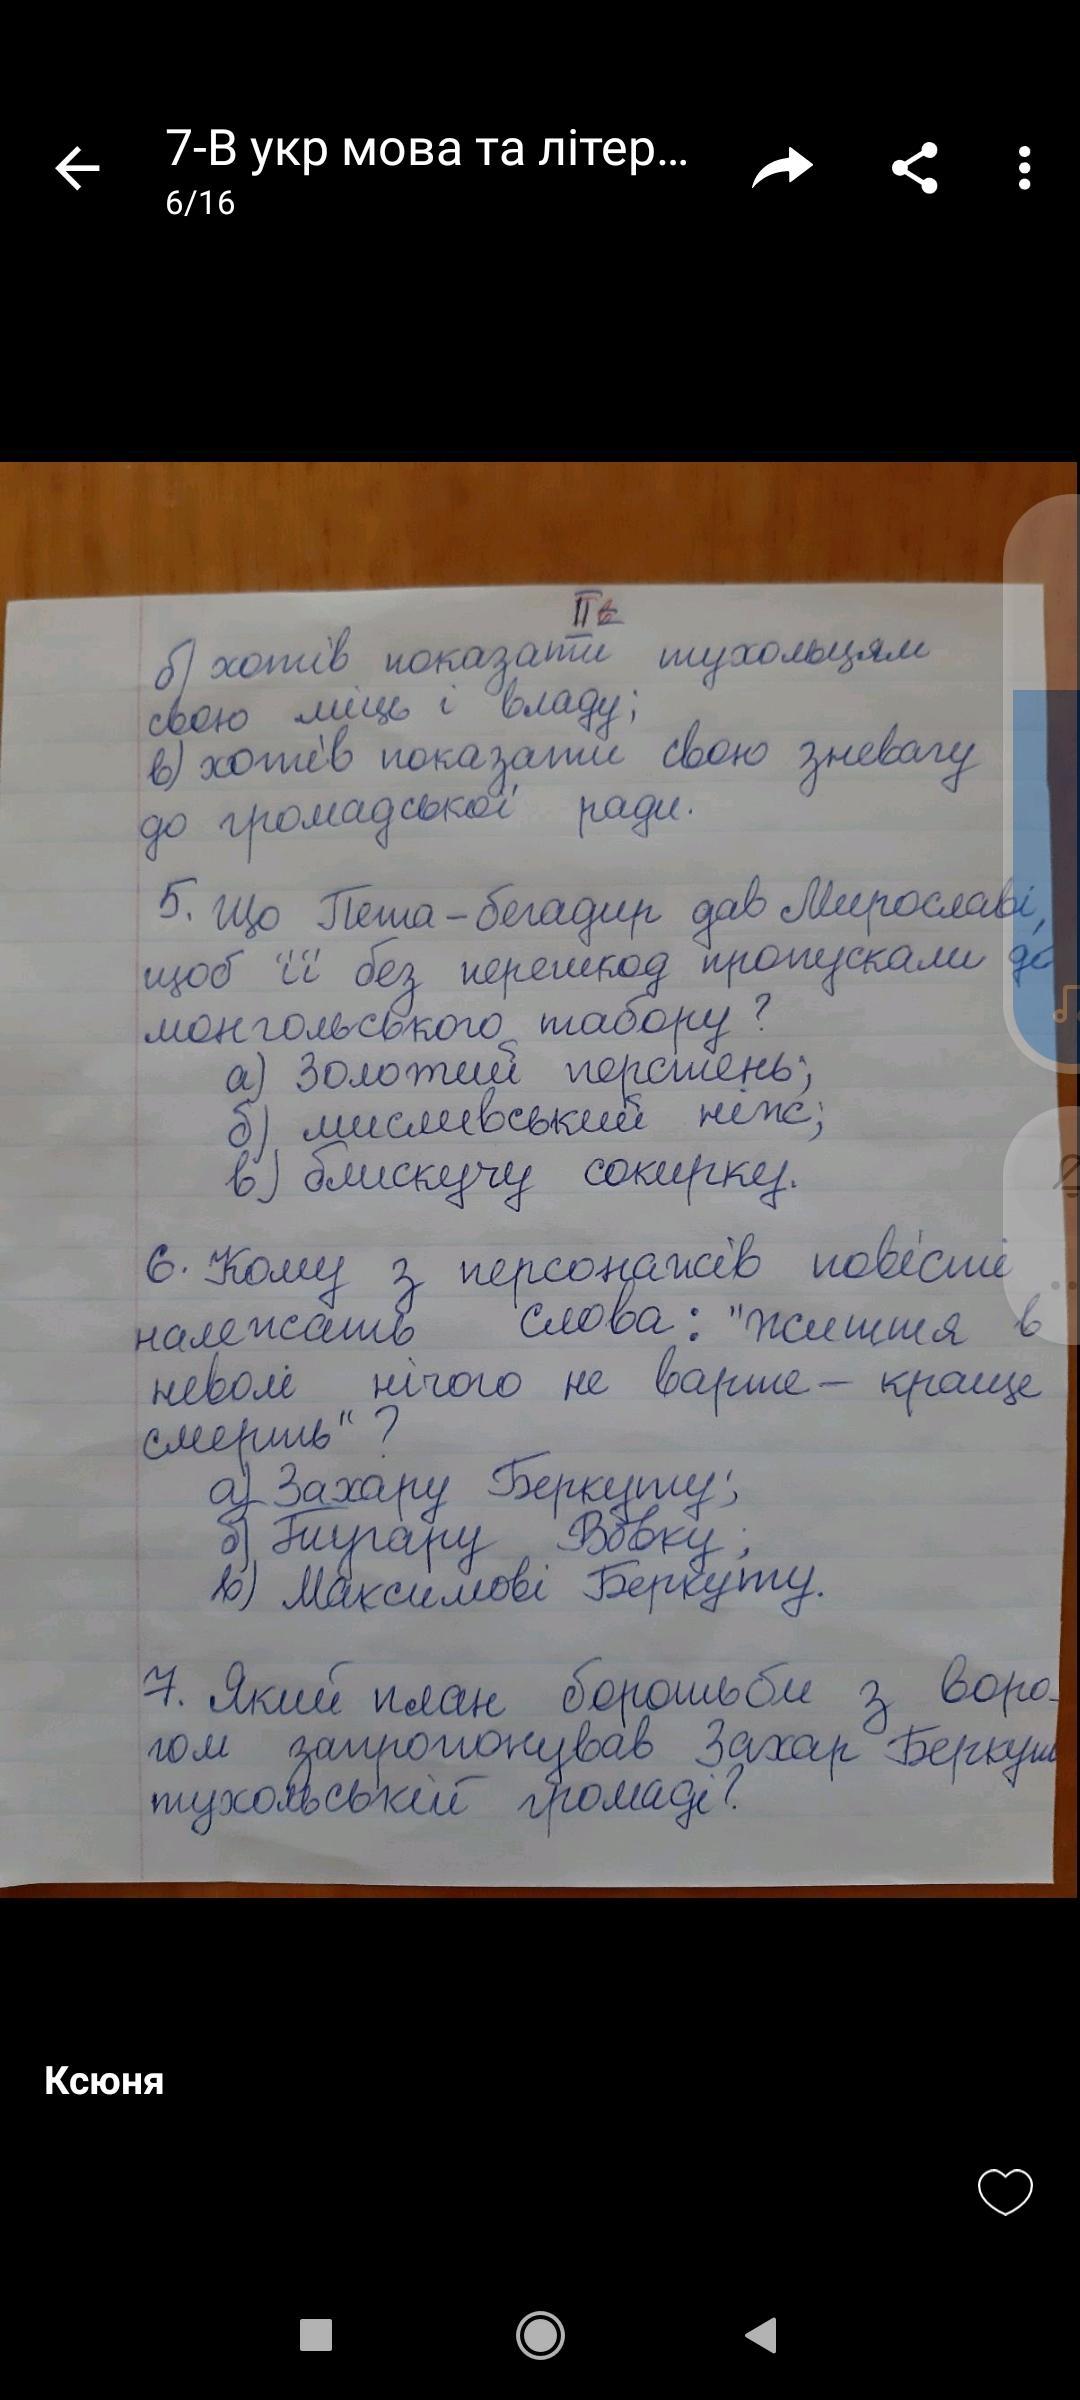 7-В укр мова та літер...
6/16
II в
б) хотів показати тухольцям
свою міць і владу;
в) хотів показати свою зневагу
до громадської ради.
5. Що Пета-бегадир дав Мирославі,
щоб її без перешкод пропускали до
монгольського табору?
а) Золотий перстень;
б) мисливський ніж;
в) блискучу сокирку.
6. Кому з персонажів повісті
належать слова: "Життя в
неволі нічого не варте - краще
смерть"?
а) Захару Беркуту;
б) Тугару Вовку;
в) Максимові Беркуту.
7. Який план боротьби з воро-
гом запропонував Захар Беркут
тухольській громаді?
Ксюня